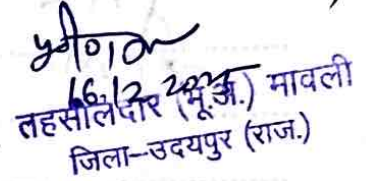 16.12.
तहसीलदार (भू.अ.) मावली
जिला–उदयपुर (राज.)